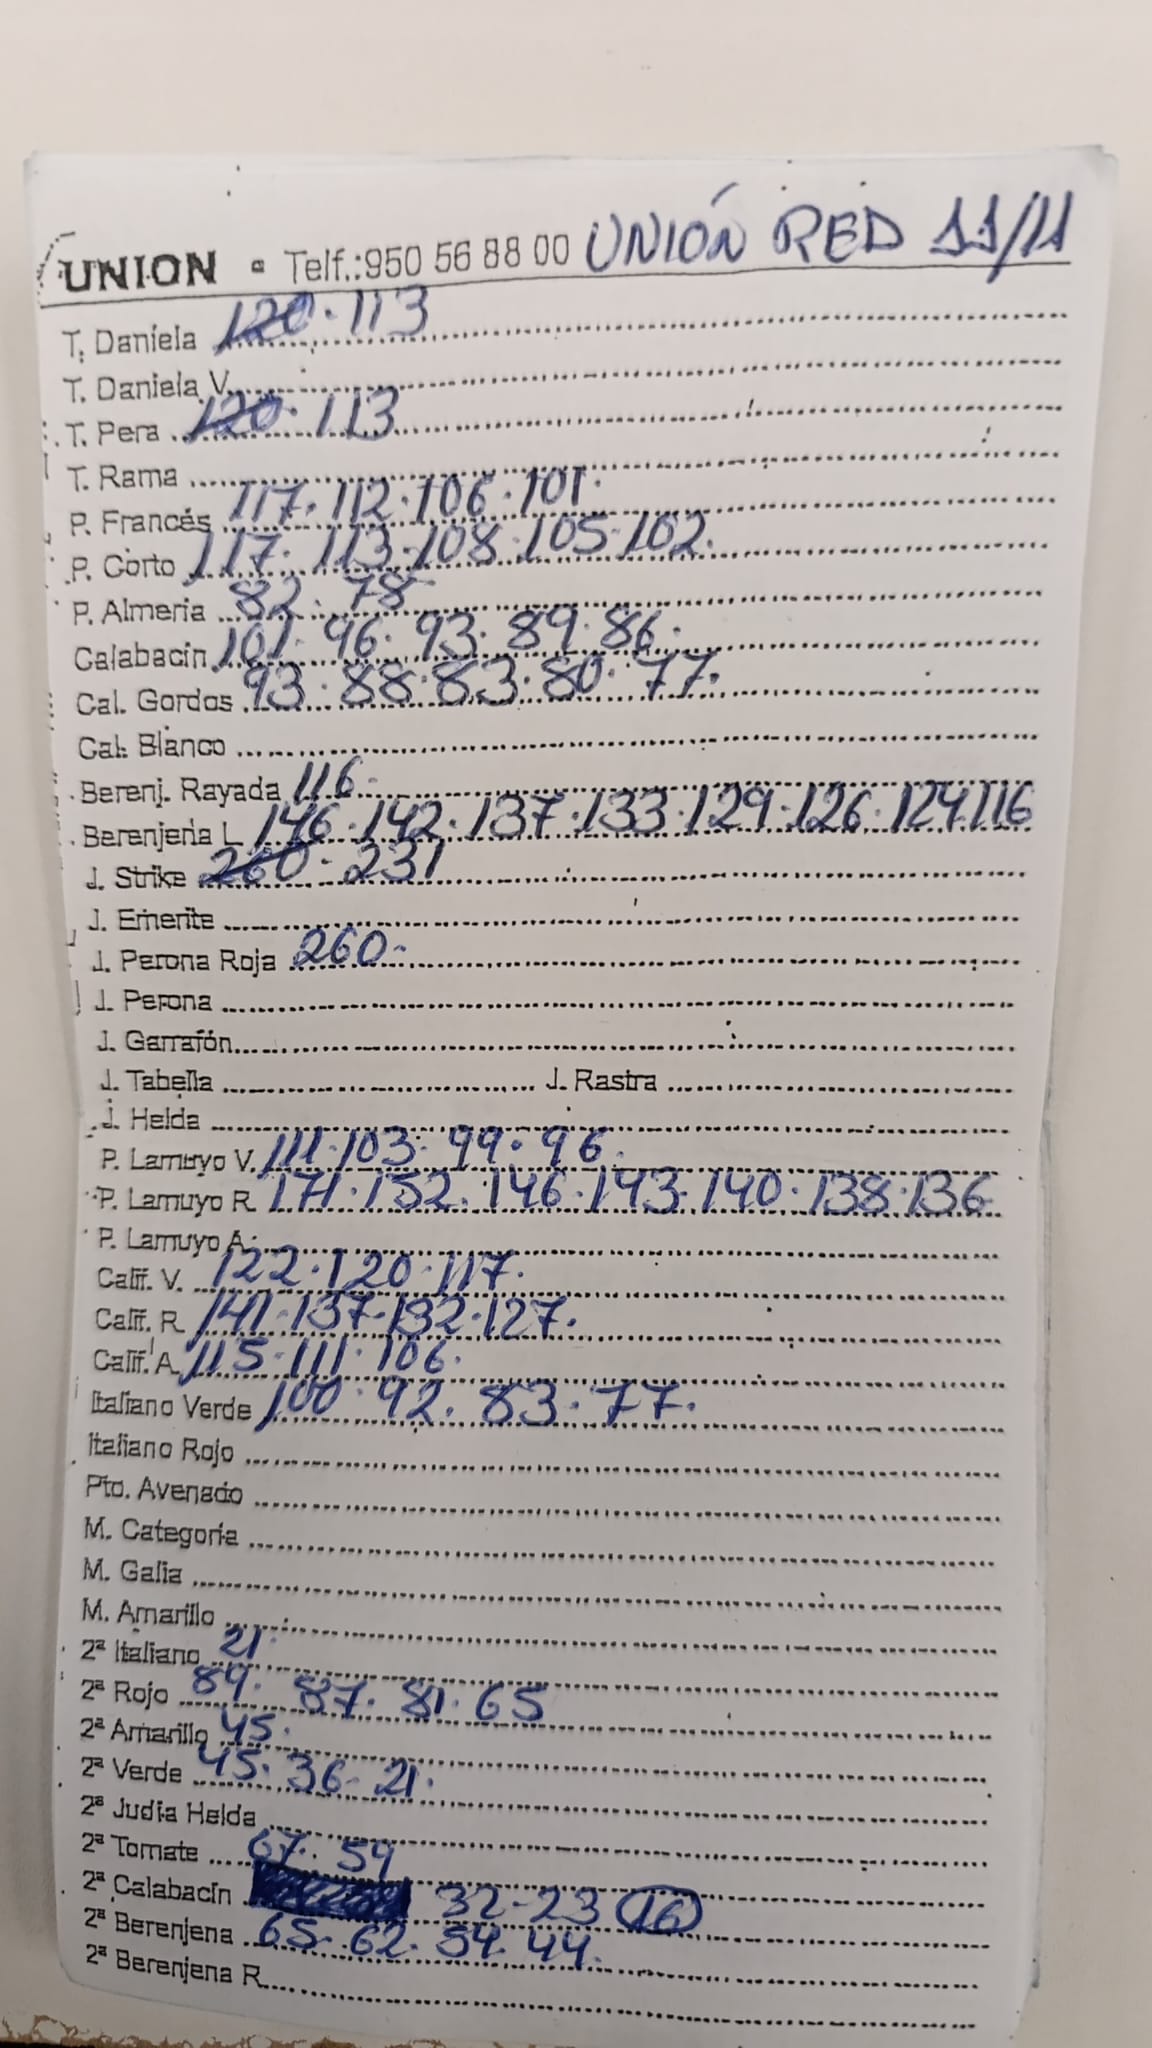 UNION - Telf.:950 56 88 00 UNIÓN RED 11/11
T. Daniela 120 · 113
T. Daniela V.
T. Pera 120 · 113
T. Rama
P. Francés 117 · 112 · 106 · 101 ·
P. Corto 117 · 113 · 108 · 105 · 102 ·
P. Almeria 82 · 78
Calabacín 101 · 96 · 93 · 89 · 86 ·
Cal. Gordos 93 · 88 · 83 · 80 · 77 ·
Cal. Blanco
Berenj. Rayada 116 ·
Berenjena L 146 · 142 · 137 · 133 · 129 · 126 · 124 116
J. Strike 260 · 231
J. Emerite
J. Perona Roja 260 -
J. Perona
J. Garrafón
J. Tabella J. Rastra
J. Helda
P. Lamuyo V. 111 · 103 · 99 · 96 ·
P. Lamuyo R. 171 · 152 · 146 · 143 · 140 · 138 · 136
P. Lamuyo A.
Calif. V. 122 · 120 · 117 ·
Calif. R. 141 · 137 · 132 · 127 ·
Calif. A. 115 · 111 · 106 ·
Italiano Verde 100 · 92 · 83 · 77 ·
Italiano Rojo
Pto. Avenado
M. Categoría
M. Galia
M. Amarillo
2ª Italiano 21 ·
2ª Rojo 89 · 87 · 81 · 65
2ª Amarillo 45 ·
2ª Verde 45 · 36 - 21 ·
2ª Judía Helda
2ª Tomate 67 · 59
2ª Calabacín 32 - 23 16
2ª Berenjena 65 · 62 · 54 · 44 ·
2ª Berenjena R.